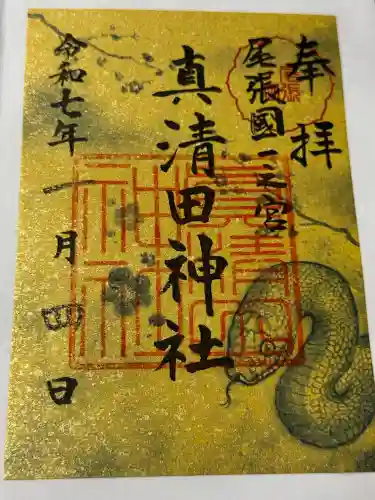 奉拝
尾張國一之宮
真清田神社
令和七年一月四日